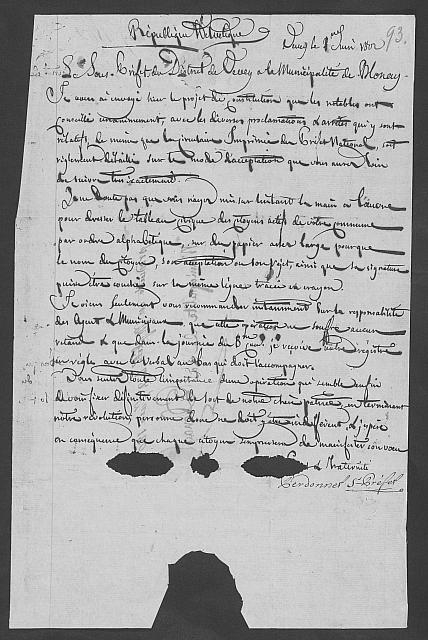 République Helvétique
Vevey le 1er Juin 1802
93.
Le Sous-Préfet du District de Vevey a la Municipalité de Blonay.
Je vous ai envoyé hier le projet de Constitution que les notables ont
Consulté unanimement, avec les diverses proclamations & arretés qui y sont
relatifs, de meme que la Circulaire Imprimée du Préfet National, son
réglement détaillé sur le mode d'acceptation que vous aurez soin
de suivre très exactement.
Je ne doute pas que vous n'ayez mis sur l'instant la main a l'œuvre
pour dresser le tableau Civique des Citoyens actifs de votre commune
par ordre alphabétique, sur du papier assez large pour que
le nom du Citoyen, son acceptation ou son rejet, ainsi que sa signature
puisse être couché sur la même ligne tracée en crayon
Je viens seulement vous recommander instamment sur la responsabilité
des Agent & Municipaux, que cette opération ne souffre aucun
retard & que dans la journée du 6me Cour. je reçoive votre régistre
en régle, avec le Verbal au bas qui doit l'accompagner.
Vous sentez toute l'importance d'une opération qui semble enfin
devoir fixer définitivement le sort de notre chere patrie, en terminant
notre révolution, personne donc ne doit y etre indifférent, & j'espère
en conséquence que chaque Citoyen s'empressera de manifester son vœu
& Fraternité
Perdonnet Ss Préfet.